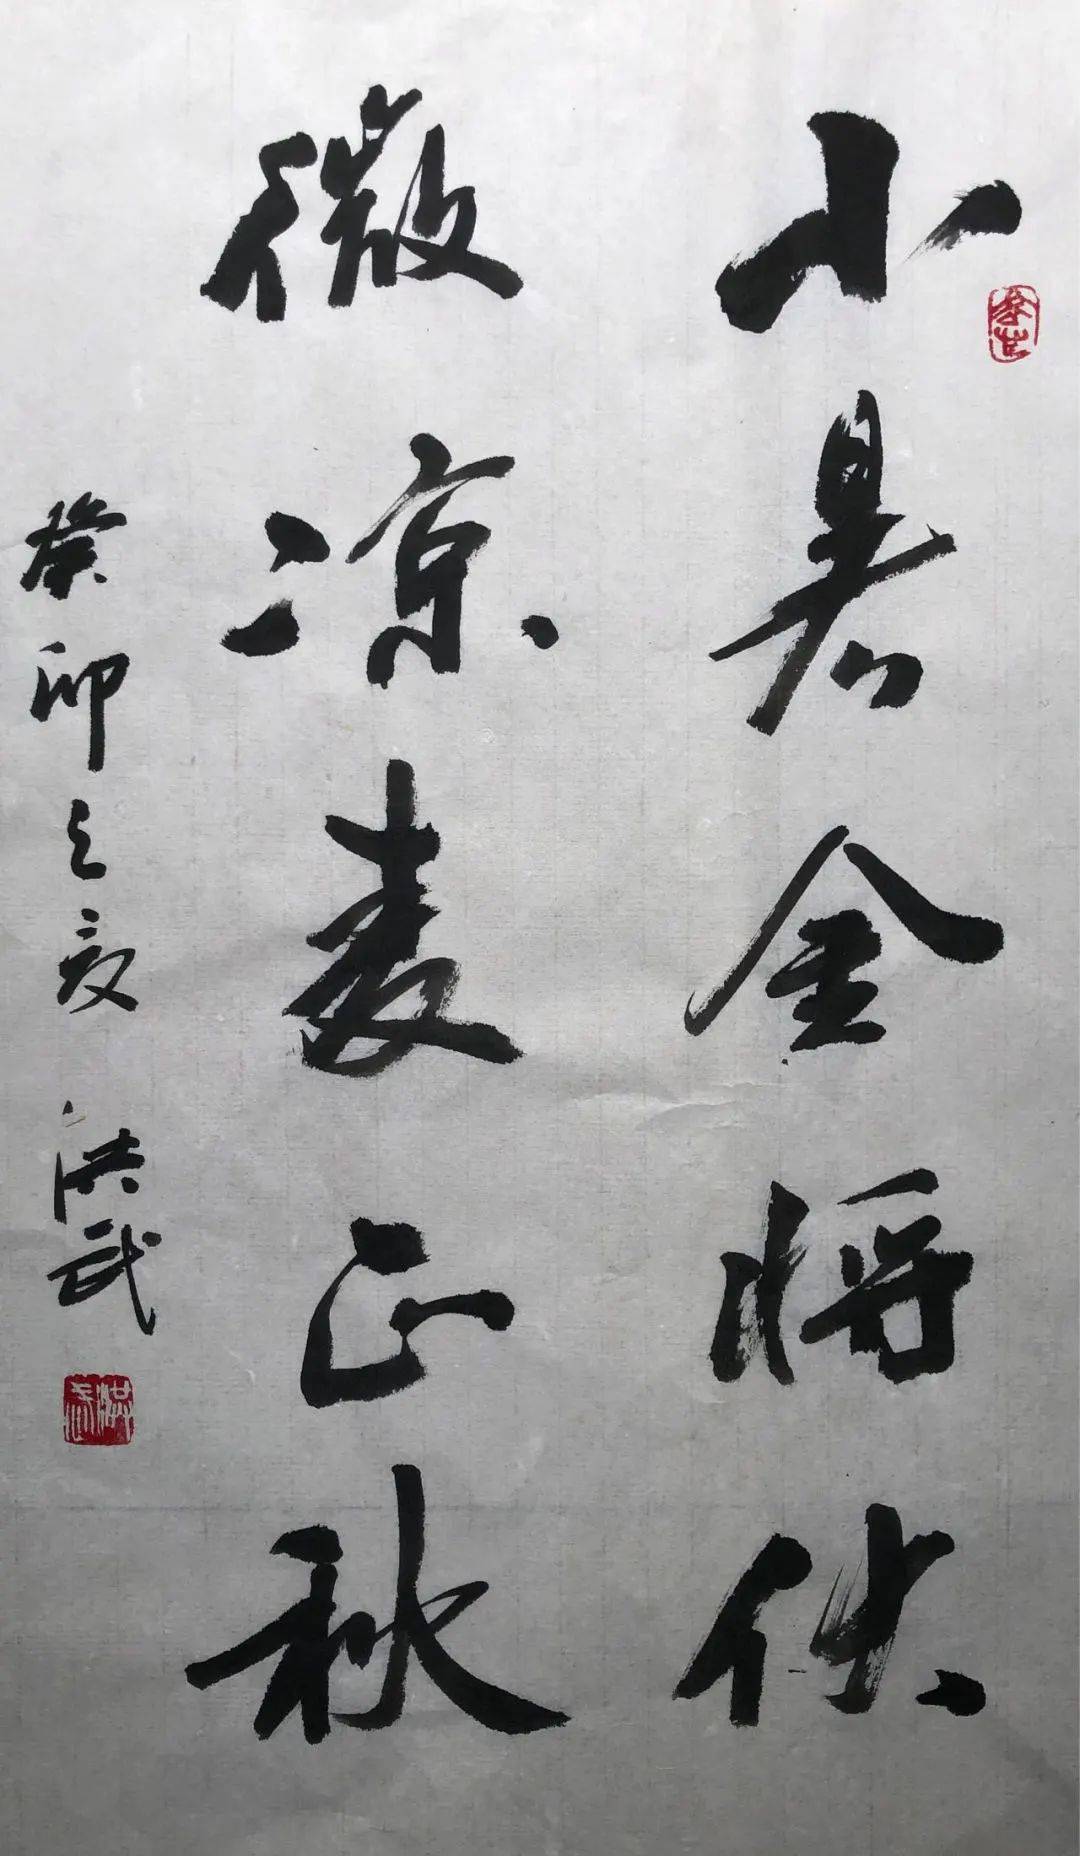 小暑金将伏
微凉麦正秋
癸卯之夏 洪武